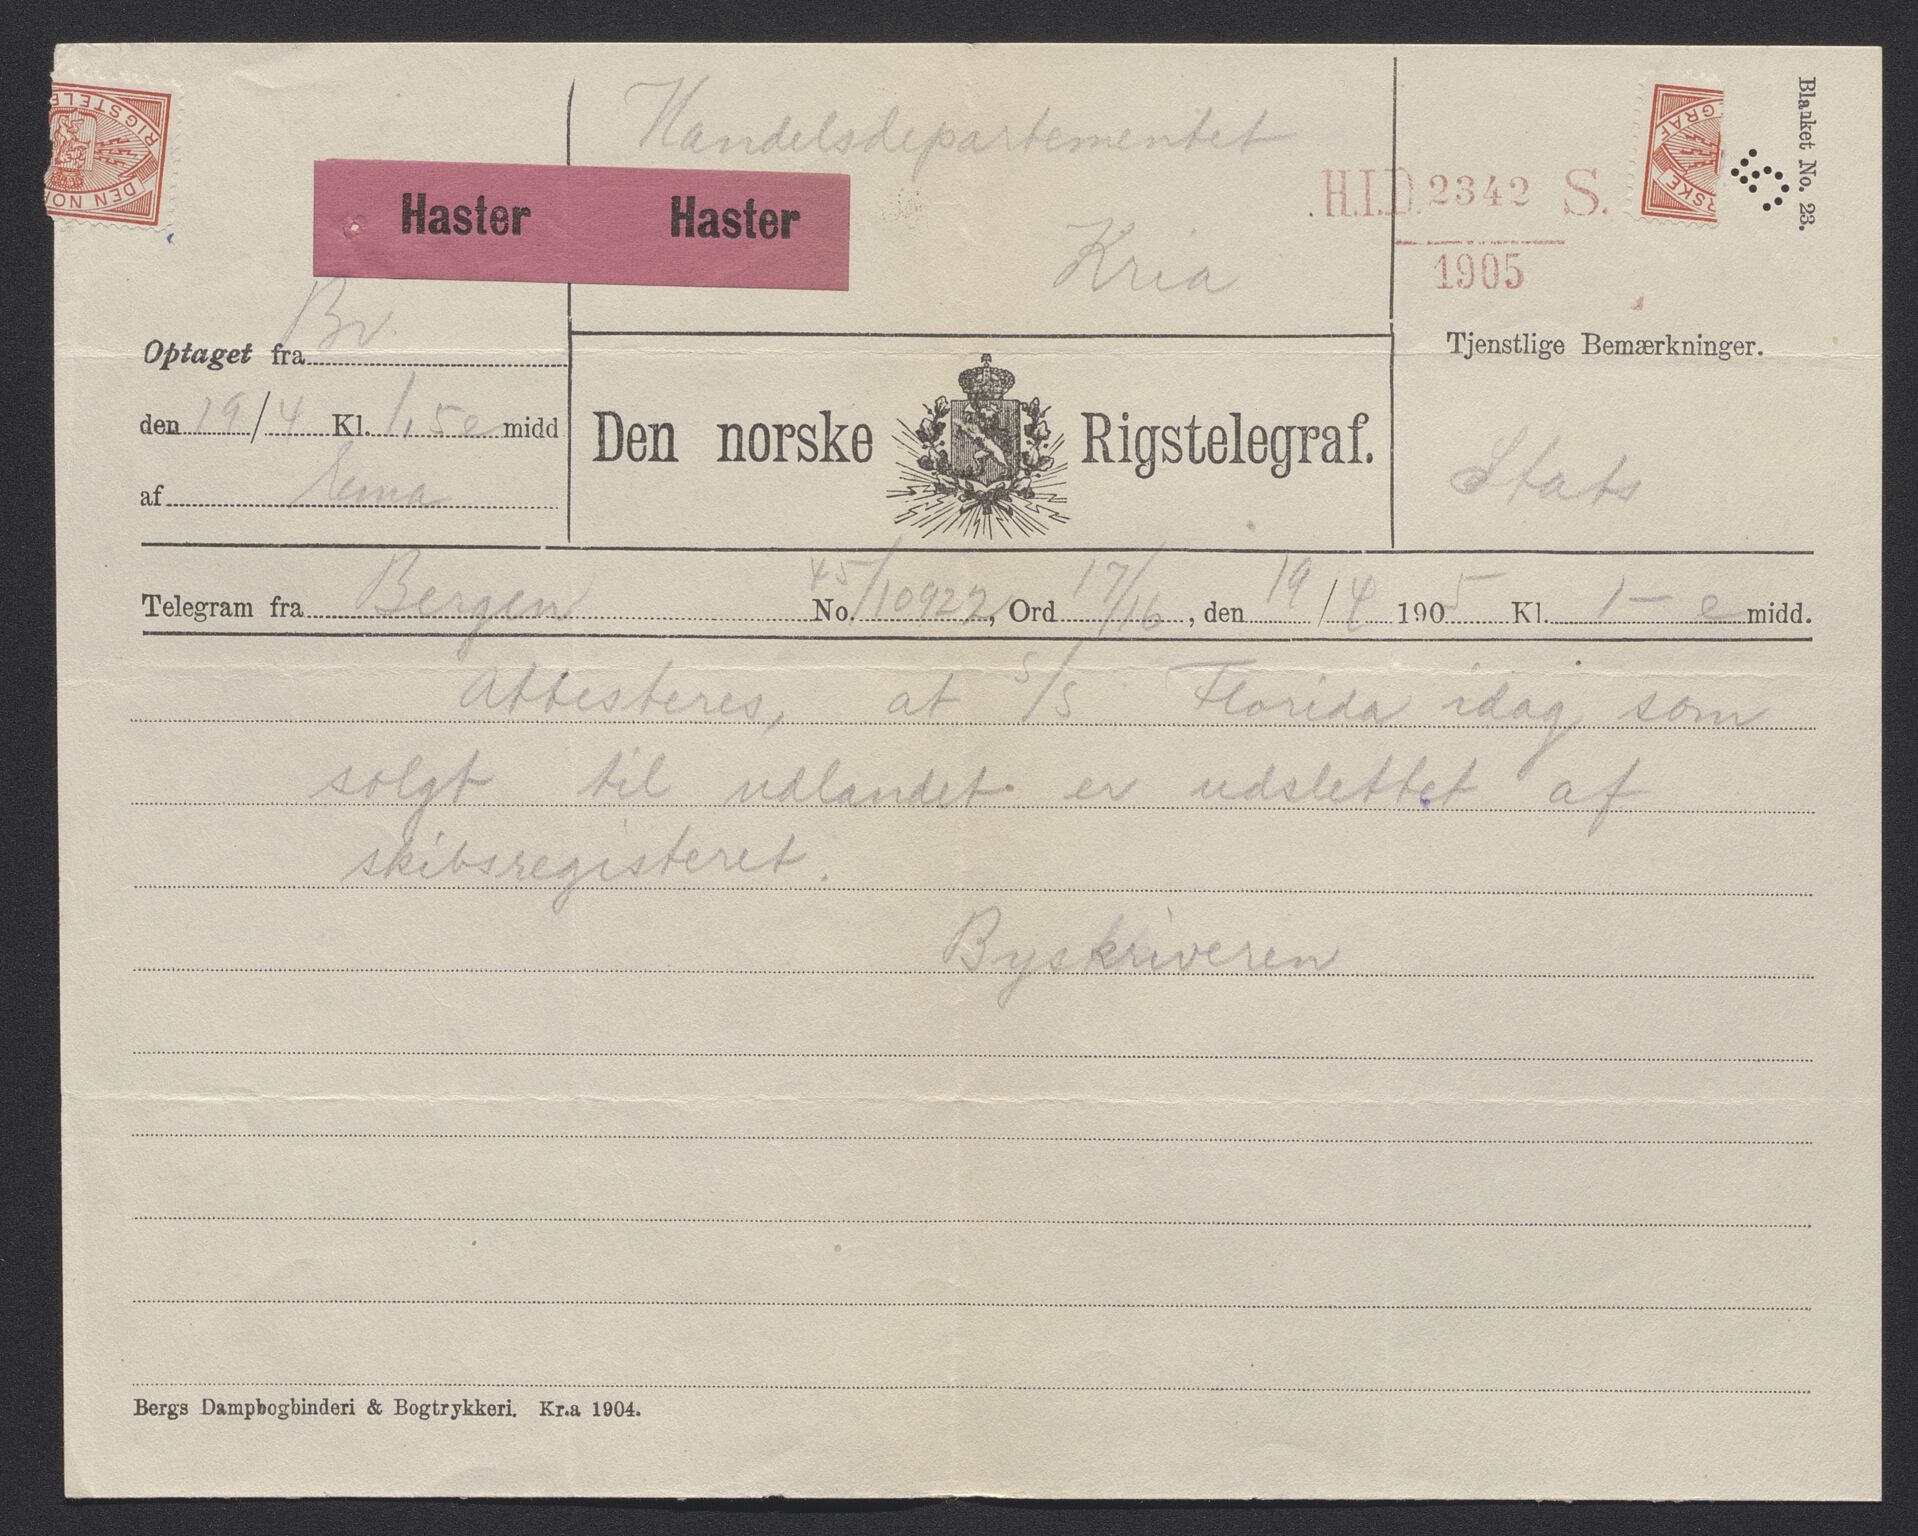 Handelsdepartementet
Kria
Haster Haster
H.I.D. 2342 S.
1905
Blanket No. 23.
DEN NOR
RIGSTELE
RSKE
GRAF
Optaget fra Bv.
den 19/4 Kl. 1,5 e midd
af
Den norske Rigstelegraf.
Tjenstlige Bemærkninger.
Stats
Telegram fra Bergen No. 45/10922, Ord 17/16, den 19/4 1905 Kl. 1 — e midd.
Attesteres, at S/S Florida idag som
solgt til udlandet er udslettet af
skibsregisteret.
Byskriveren
Bergs Dampbogbinderi & Bogtrykkeri. Kr.a 1904.